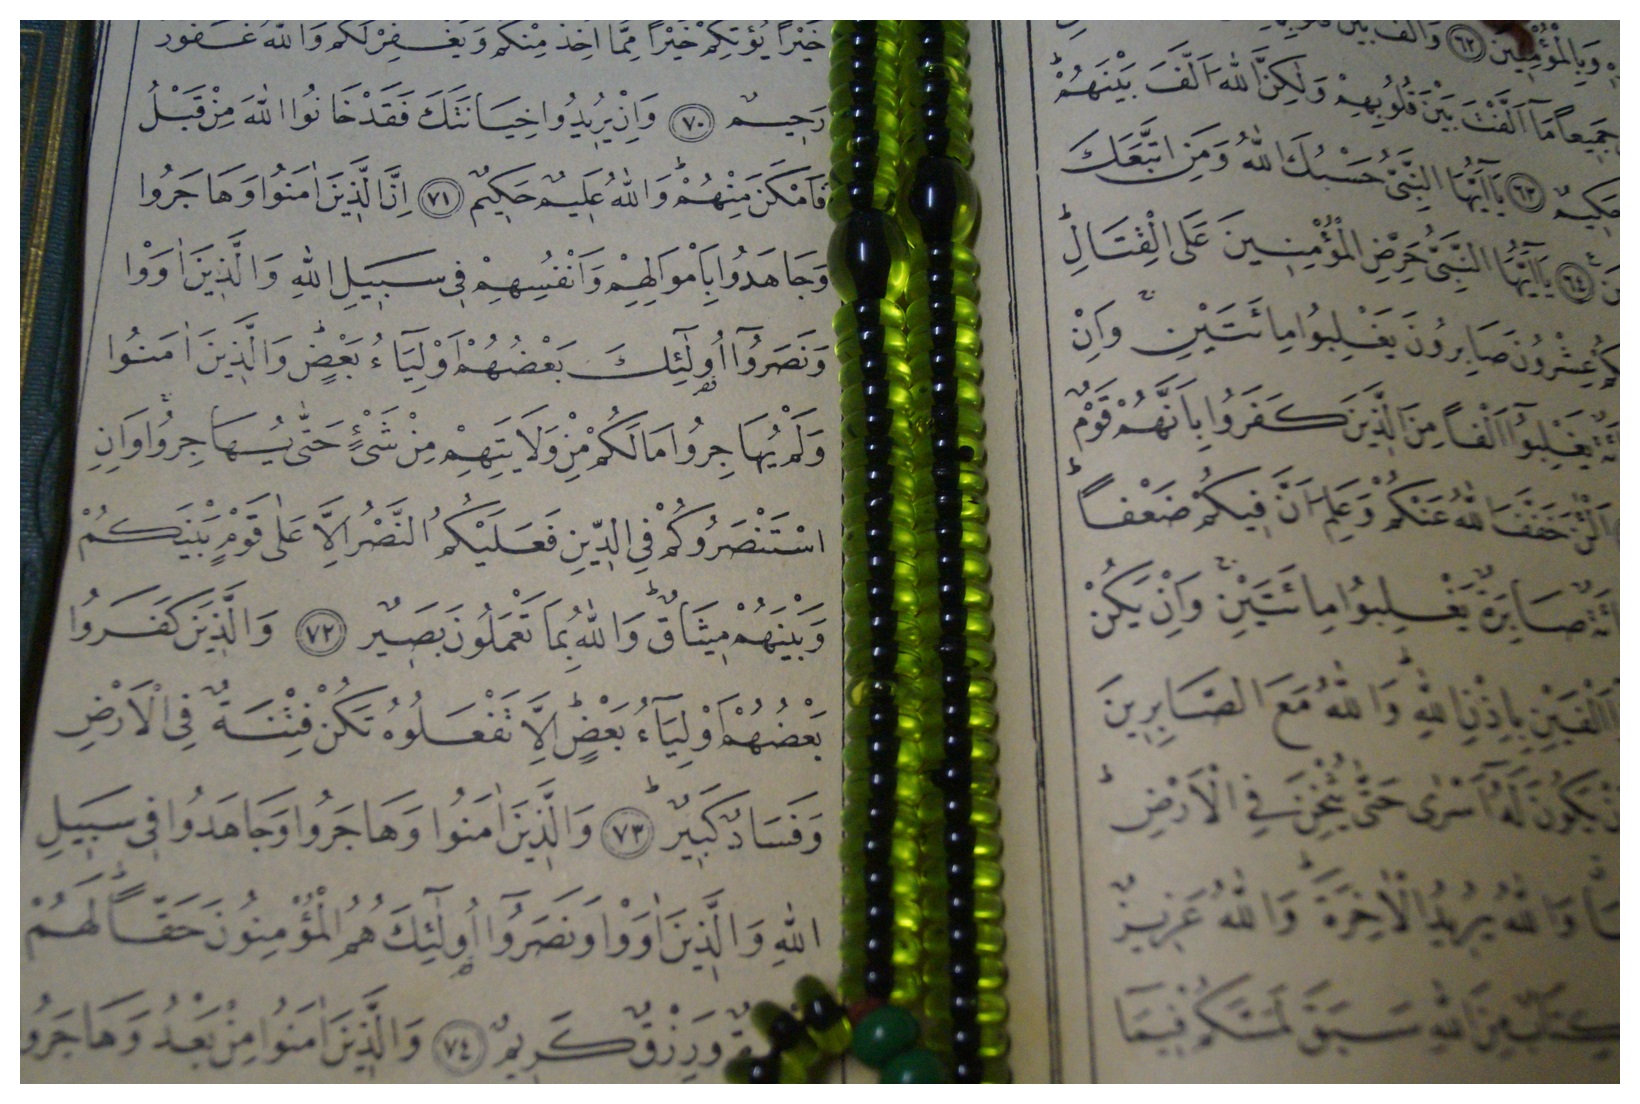 وَبِالْمُؤْمِنِينَ ﴿٦٢﴾ وَاَلَّفَ بَيْنَ
جَمِيعاً مَٓا اَلَّفْتَ بَيْنَ قُلُوبِهِمْ وَلٰكِنَّ اللّٰهَ اَلَّفَ بَيْنَهُمْ
حَكِيمٌ ﴿٦٣﴾ يَٓا اَيُّهَا النَّبِيُّ حَسْبُكَ اللّٰهُ وَمَنِ اتَّبَعَكَ
﴿٦٤﴾ يَٓا اَيُّهَا النَّبِيُّ حَرِّضِ الْمُؤْمِنِينَ عَلَى الْقِتَالِ
عِشْرُونَ صَابِرُونَ يَغْلِبُوا مِائَتَيْنِ وَاِنْ
يَغْلِبُٓوا اَلْفاً مِنَ الَّذِينَ كَفَرُوا بِاَنَّهُمْ قَوْمٌ
اَلْئٰنَ خَفَّفَ اللّٰهُ عَنْكُمْ وَعَلِمَ اَنَّ فِيكُمْ ضَعْفاً
صَابِرَةٌ يَغْلِبُوا مِائَتَيْنِ وَاِنْ يَكُنْ
اَلْفَيْنِ بِاِذْنِ اللّٰهِ وَاللّٰهُ مَعَ الصَّابِرِينَ
يَكُونَ لَهُٓ اَسْرٰى حَتّٰى يُثْخِنَ فِي الْاَرْضِ
وَاللّٰهُ يُرِيدُ الْاٰخِرَةَ وَاللّٰهُ عَزِيزٌ
كِتَابٌ مِنَ اللّٰهِ سَبَقَ لَمَسَّكُمْ فِيمَٓا
خَيْراً يُؤْتِكُمْ خَيْراً مِمَّٓا اُخِذَ مِنْكُمْ وَيَغْفِرْ لَكُمْ وَاللّٰهُ غَفُورٌ
رَحِيمٌ ﴿٧٠﴾ وَاِنْ يُرِيدُوا خِيَانَتَكَ فَقَدْ خَانُوا اللّٰهَ مِنْ قَبْلُ
فَاَمْكَنَ مِنْهُمْ وَاللّٰهُ عَلِيمٌ حَكِيمٌ ﴿٧١﴾ اِنَّ الَّذِينَ اٰمَنُوا وَهَاجَرُوا
وَجَاهَدُوا بِاَمْوَالِهِمْ وَاَنْفُسِهِمْ فِي سَبِيلِ اللّٰهِ وَالَّذِينَ اٰوَوْا
وَنَصَرُٓوا اُو۬لٰٓئِكَ بَعْضُهُمْ اَوْلِيَٓاءُ بَعْضٍ وَالَّذِينَ اٰمَنُوا
وَلَمْ يُهَاجِرُوا مَا لَكُمْ مِنْ وَلَايَتِهِمْ مِنْ شَيْءٍ حَتّٰى يُهَاجِرُوا وَاِنِ
اسْتَنْصَرُوكُمْ فِي الدِّينِ فَعَلَيْكُمُ النَّصْرُ اِلَّا عَلٰى قَوْمٍ بَيْنَكُمْ
وَبَيْنَهُمْ مِيثَاقٌ وَاللّٰهُ بِمَا تَعْمَلُونَ بَصِيرٌ ﴿٧٢﴾ وَالَّذِينَ كَفَرُوا
بَعْضُهُمْ اَوْلِيَٓاءُ بَعْضٍ اِلَّا تَفْعَلُوهُ تَكُنْ فِتْنَةٌ فِي الْاَرْضِ
وَفَسَادٌ كَبِيرٌ ﴿٧٣﴾ وَالَّذِينَ اٰمَنُوا وَهَاجَرُوا وَجَاهَدُوا فِي سَبِيلِ
اللّٰهِ وَالَّذِينَ اٰوَوْا وَنَصَرُٓوا اُو۬لٰٓئِكَ هُمُ الْمُؤْمِنُونَ حَقاًّ لَهُمْ
وَرِزْقٌ كَرِيمٌ ﴿٧٤﴾ وَالَّذِينَ اٰمَنُوا مِنْ بَعْدُ وَهَاجَرُوا